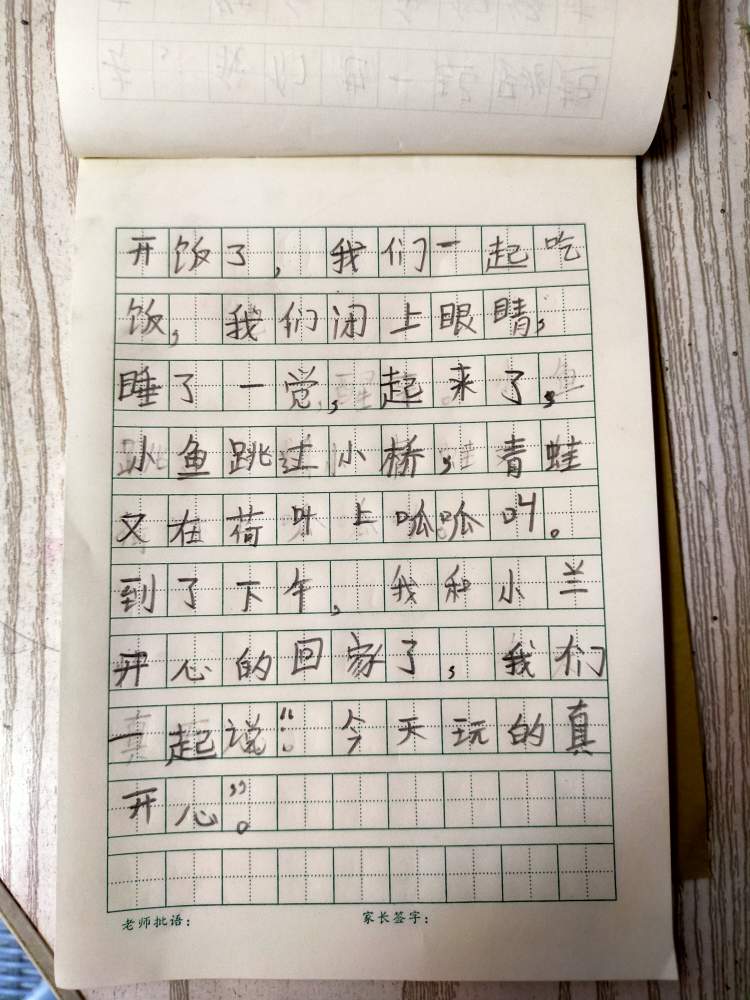 开饭了，我们一起吃
饭，我们闭上眼睛，
睡了一觉，起来了，
小鱼跳过小桥，青蛙
又在荷叶上呱呱叫。
到了下午，我和小兰
开心的回家了，我们
一起说：“今天玩的真
开心”。
老师批语： 家长签字：